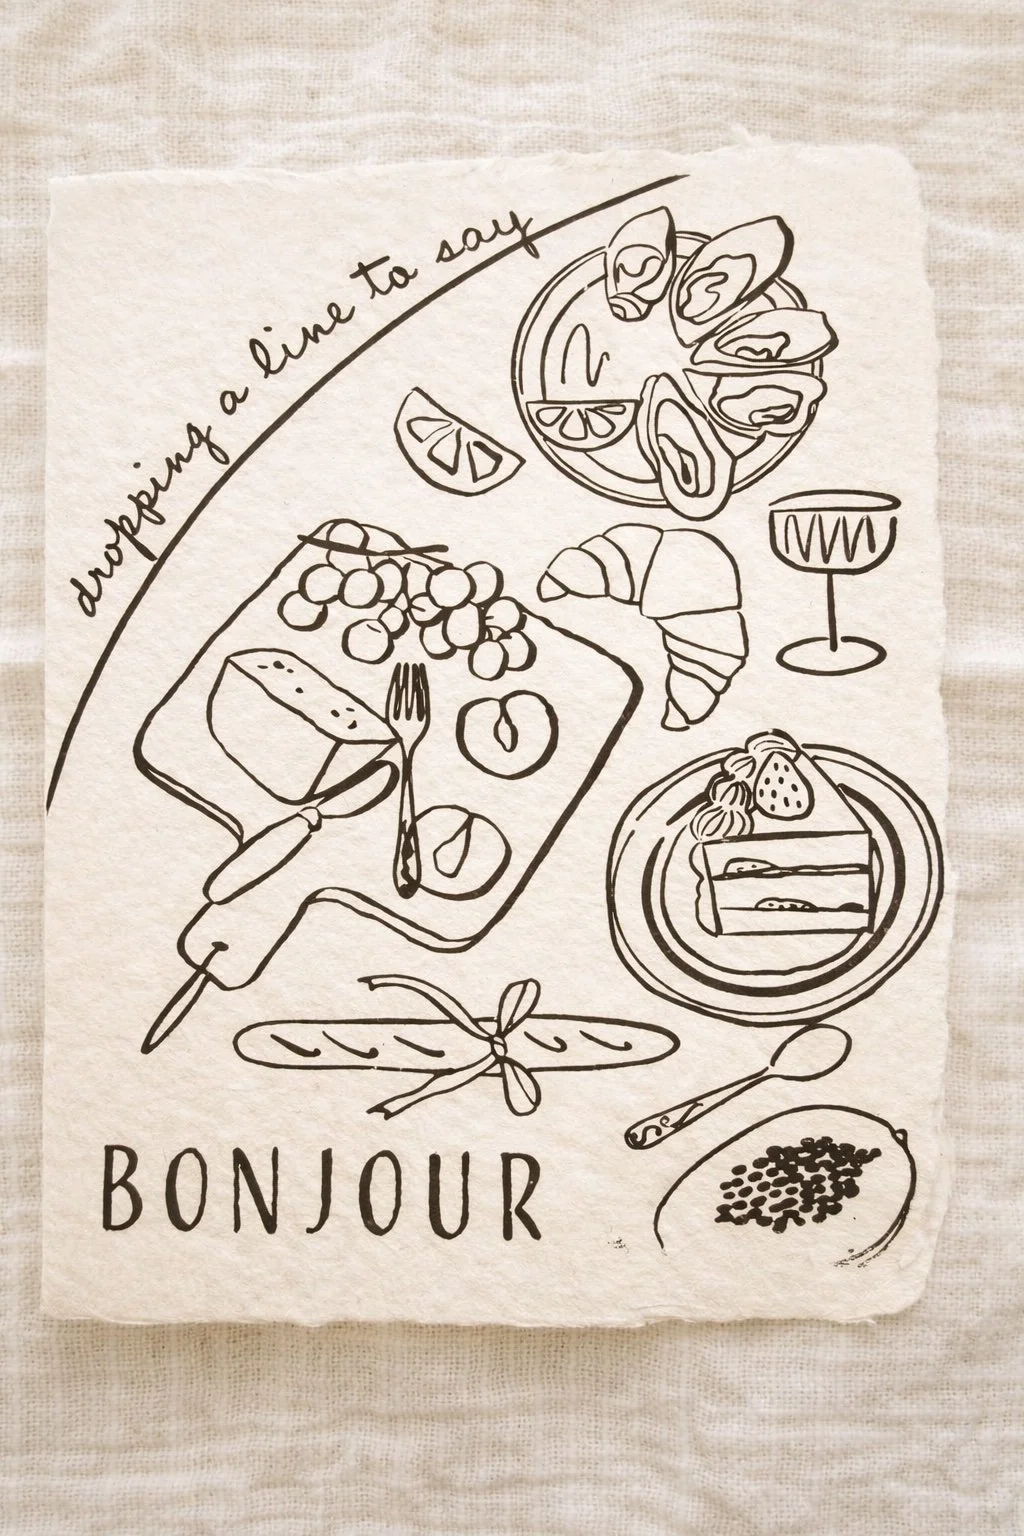 dropping a line to say
BONJOUR